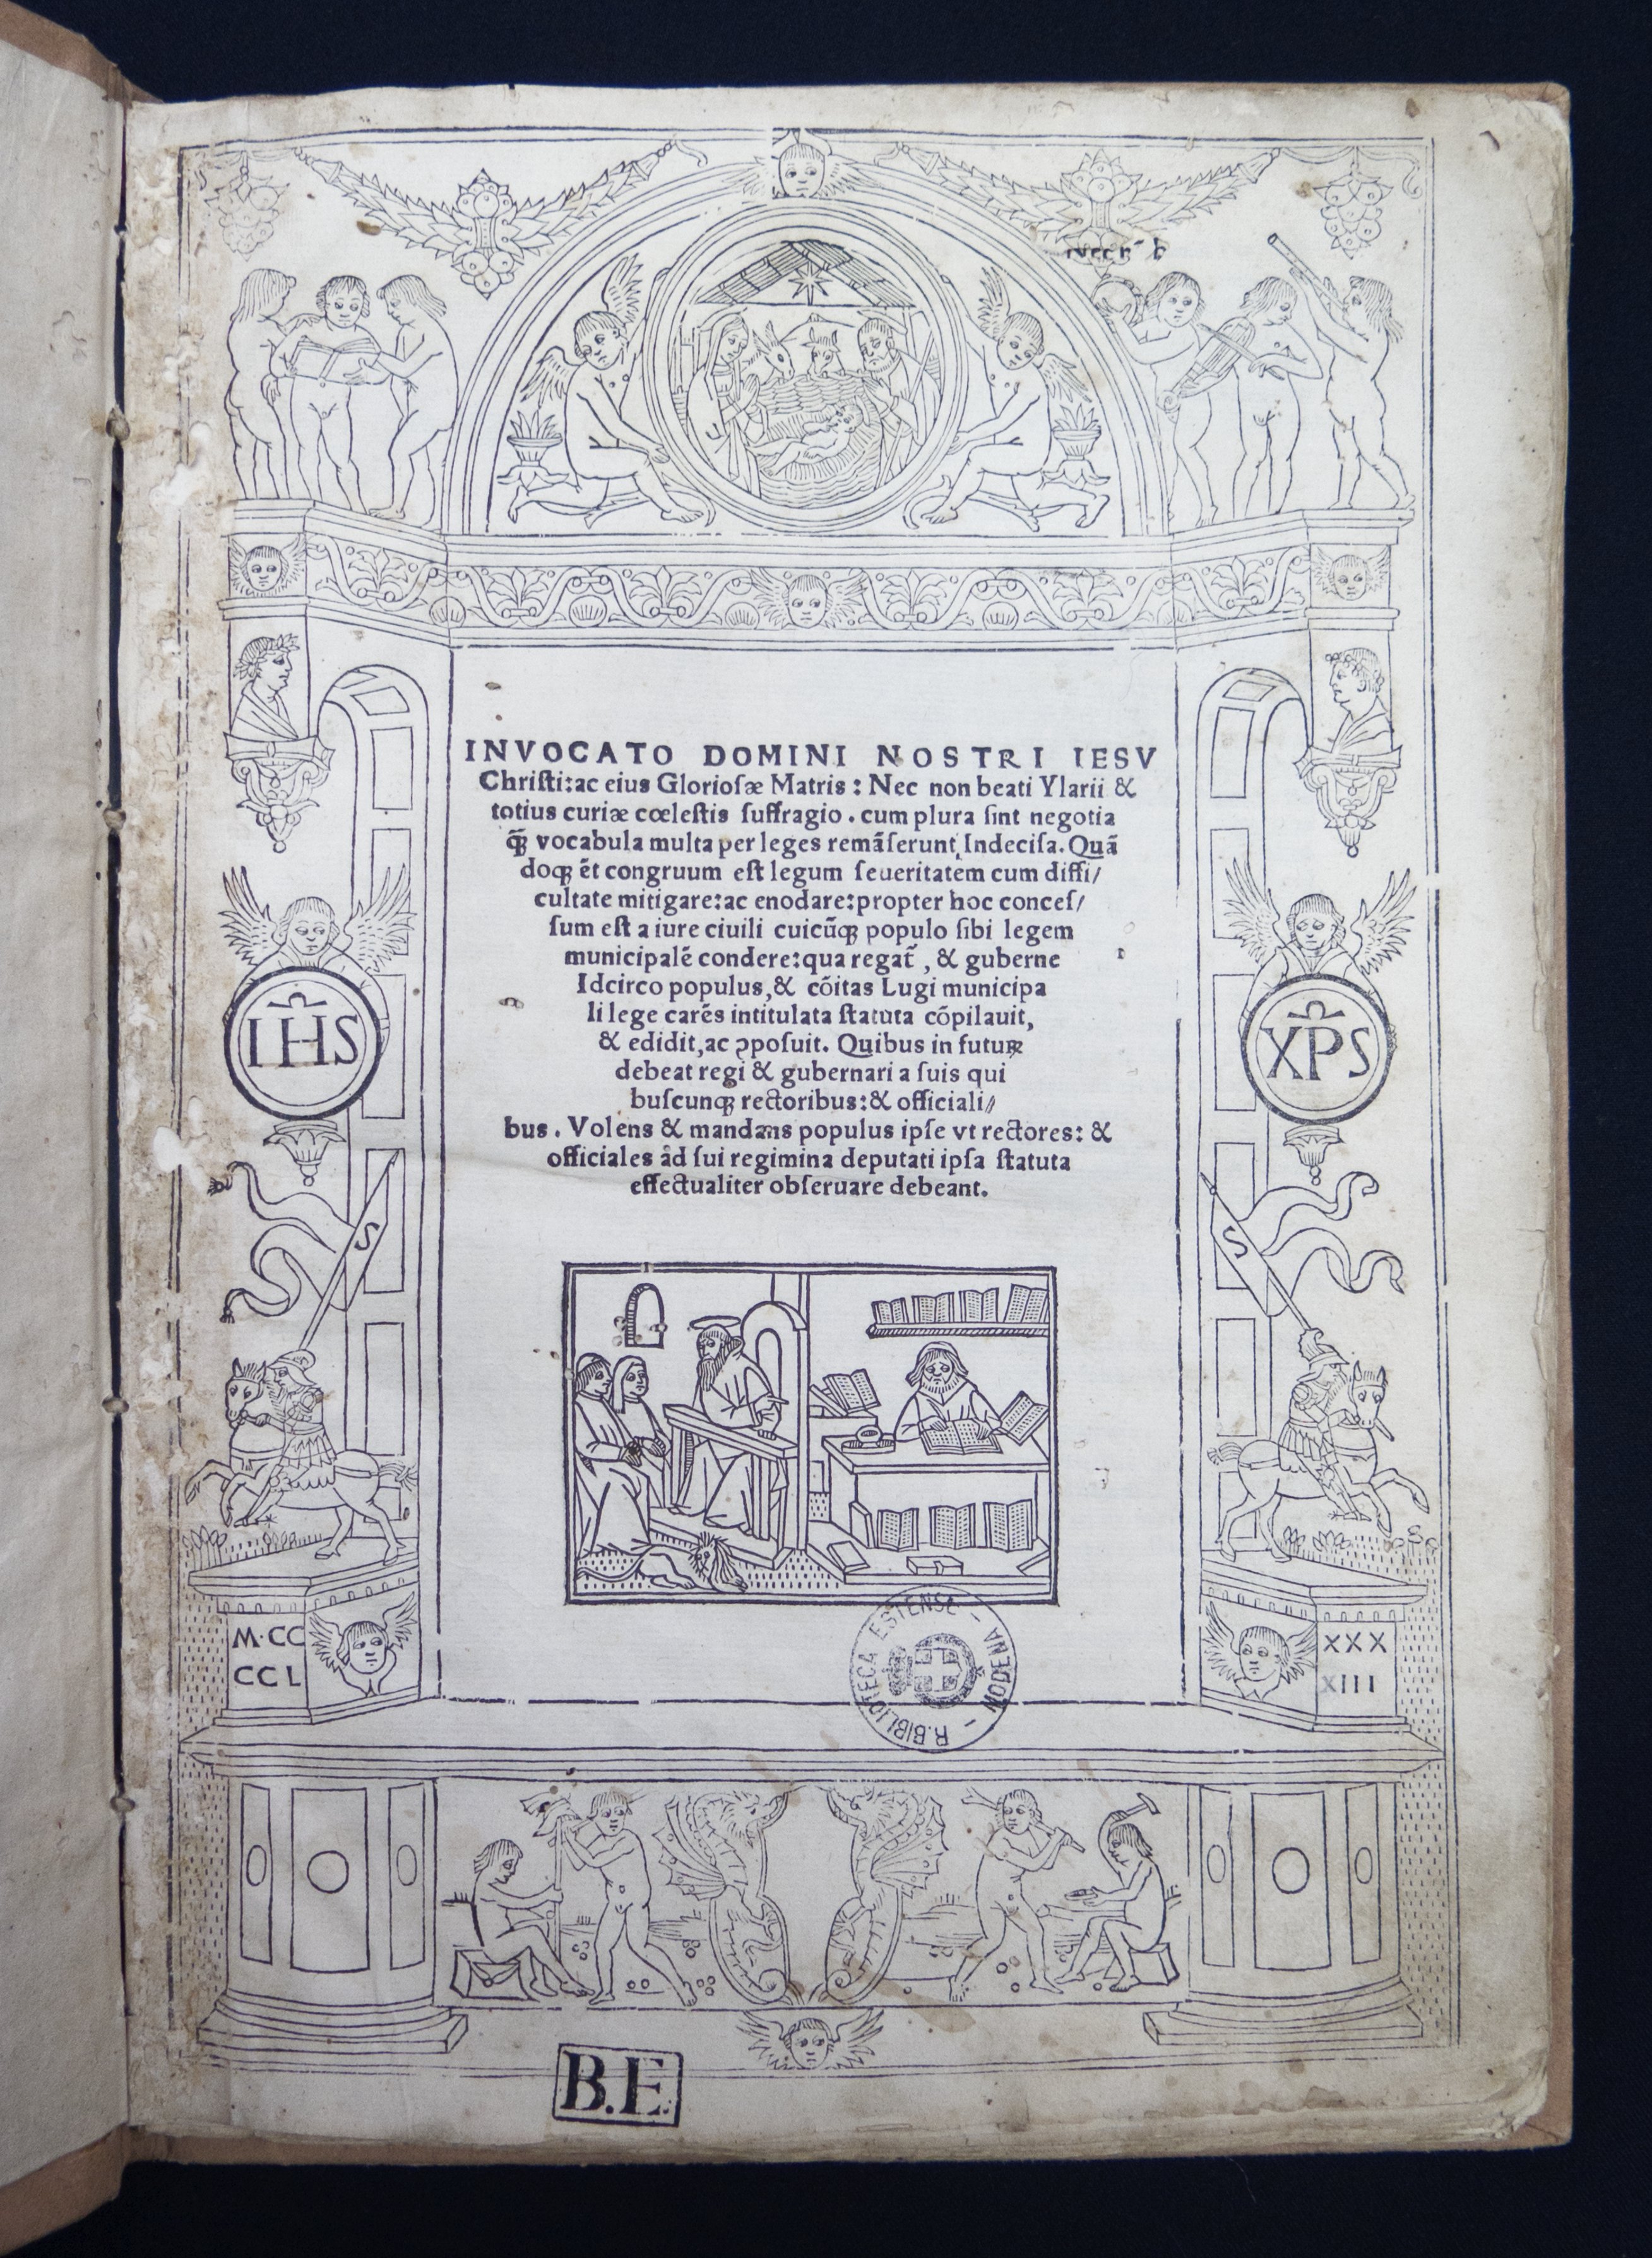 INVOCATO DOMINI NOSTRI IESV
Chriſti:ac eius Glorioſæ Matris: Nec non beati Ylarii &
totius curiæ cœleſtis ſuffragio. cum plura ſint negotia
q̃ꝫ vocabula multa per leges remãſerunt Indeciſa. Quã
doqꝫ ẽt congruum eſt legum ſeueritatem cum diffi/
cultate mitigare:ac enodare:propter hoc conceſ/
ſum eſt a iure ciuili cuicũqꝫ populo ſibi legem
municipalẽ condere:qua regat̃, & guberne
Idcirco populus,& cõitas Lugi municipa
li lege carẽs intitulata ſtatuta cõpilauit,
& edidit,ac ꝓpoſuit. Quibus in futuꝝ
debeat regi & gubernari a ſuis qui
buſcunqꝫ rectoribus:& officiali//
bus. Volens & mandans populus ipſe vt rectores: &
officiales ad ſui regimina deputati ipſa ſtatuta
effectualiter obſeruare debeant.
IHS
XPS
S
S
M·CC
CCL
XXX
XIII
R. BIBLIOTECA ESTENSE - MODENA -
B.E.